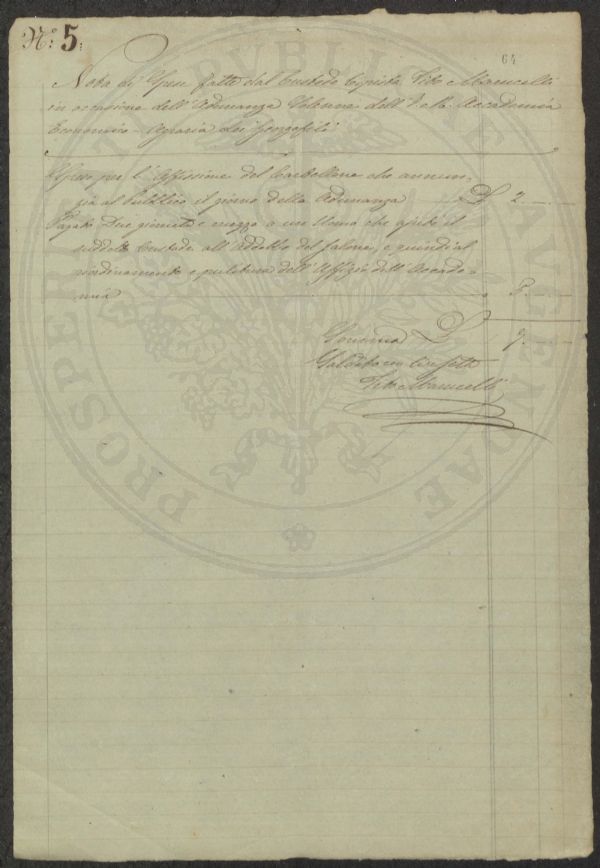 N.º 5.
64
Nota di Spese fatte dal Custode Copista Tito Manucelli
in occasione dell'Adunanza Solenne dell'I. e R. Accademia
Economico-Agraria dei Georgofili
Spese per l'Affissione del Cartellone che annun-
zia al Pubblico il giorno della Adunanza £ 2. —
Pagato Due giornate e mezzo a un Uomo che ajutò il
suddetto Custode all'addobbo del salone, e quindi al
riordinamento e pulitura dell'Uffizio dell'Accade-
mia 5. —
Somma £ 7. —
Saldato con
Tito Manucelli
PROSPERITATI PUBLICAE AUGENDAE